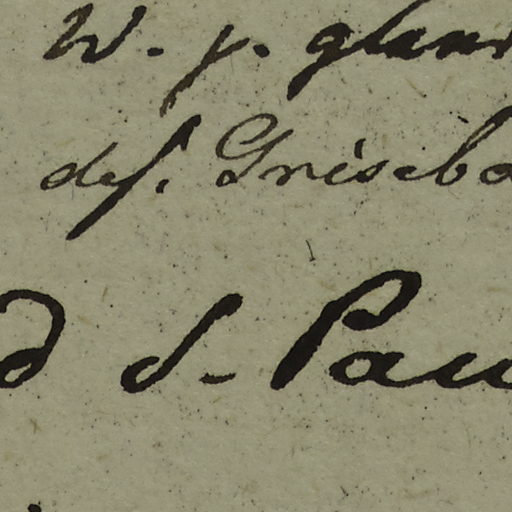 W. γ. glan
des. Griseba
d S. Pau